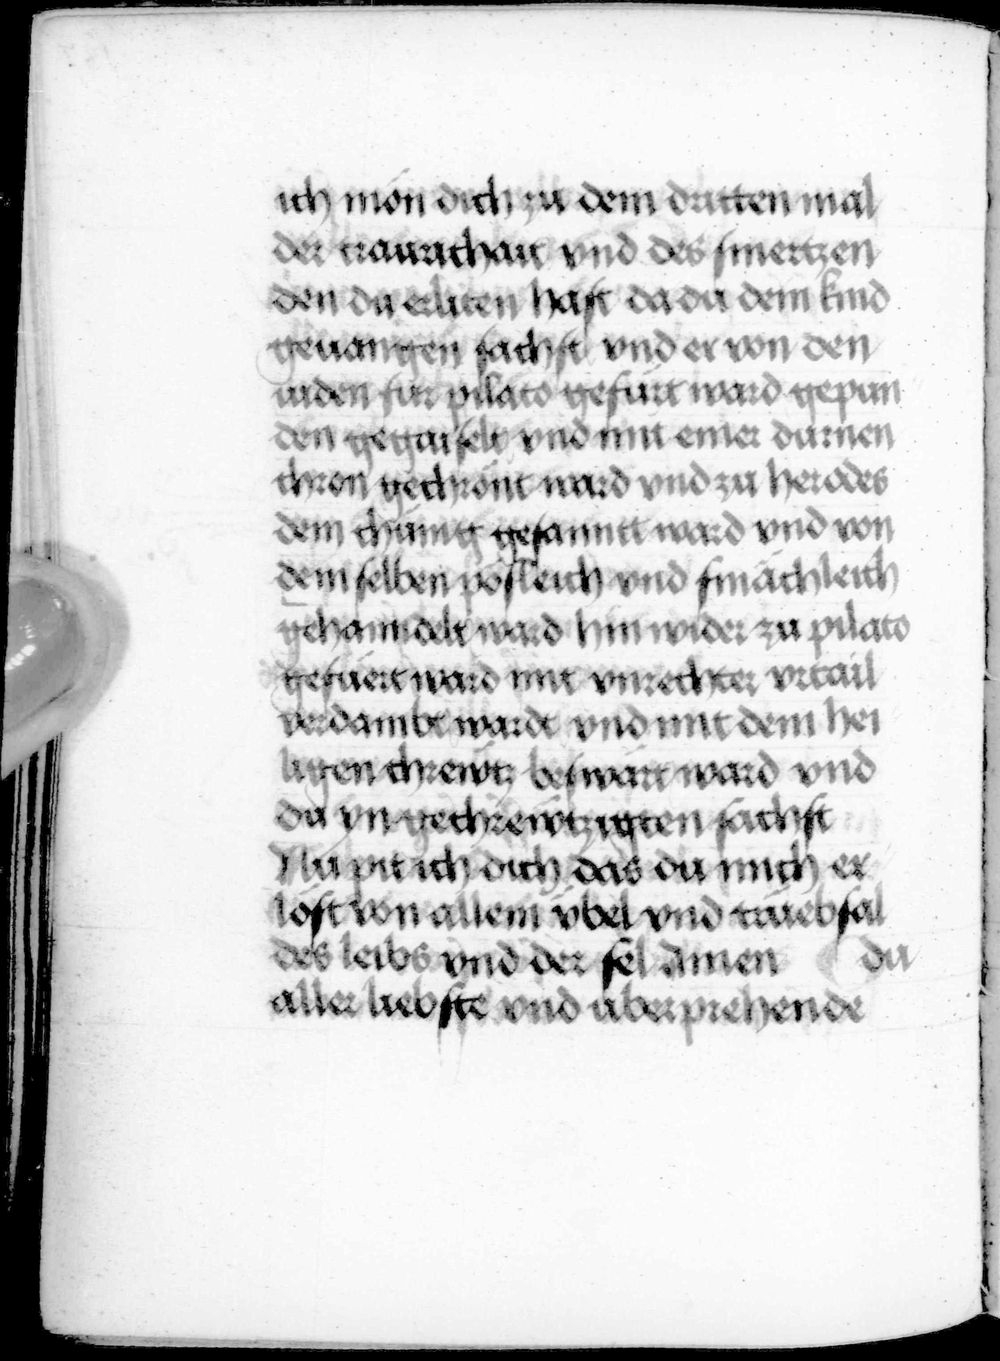 ich món dich zu dem dritten mal
der traurichait vnd des smertzen
den du erliten hast da du dein kind
geuangen sachst vnd er von den
iuden für pilato gefürt ward gepun
den gegaiselt vnd mit einer durnen
chron gechrónt ward vnd zu herodes
dem chünig gesanntt ward vnd von
dem selben pósleich vnd smáchleich
gehanndelt ward hin wider zu pilato
gefüert ward mit vnrechter vrtail
verdambt wardt vnd mit dem hei
ligen chrewtz beswárt ward vnd
du yn gechrewtzigten sachst
Nu pit ich dich das du mich er
lóst von allem übel vnd trüebsal
des leibs vnd der sel Amen du
aller liebste vnd überprehende